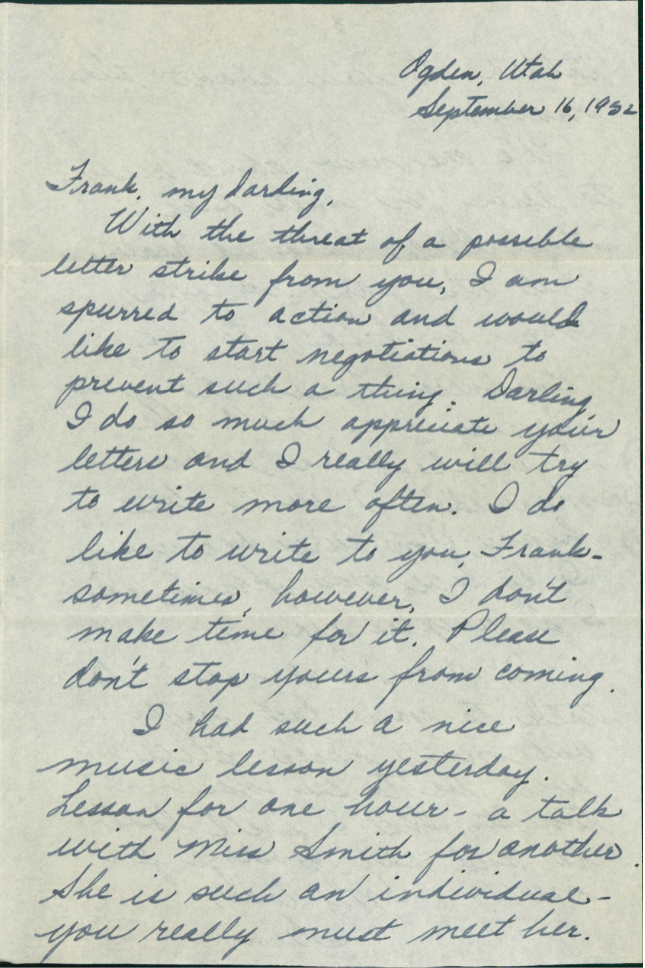 Ogden, Utah
September 16, 1952
Frank, my darling,
With the threat of a possible
letter strike from you, I am
spurred to action and would
like to start negotiations to
prevent such a thing. Darling
I do so much appreciate your
letters and I really will try
to write more often. I do
like to write to you, Frank-
sometimes, however, I don't
make time for it. Please
don't stop yours from coming.
I had such a nice
music lesson yesterday.
Lesson for one hour - a talk
with Miss Smith for another.
She is such an individual-
you really must meet her.